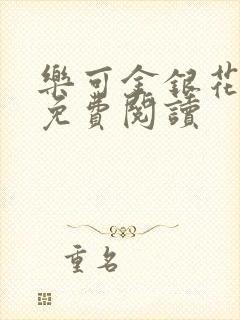 樂可金銀花
免費閱讀
重名